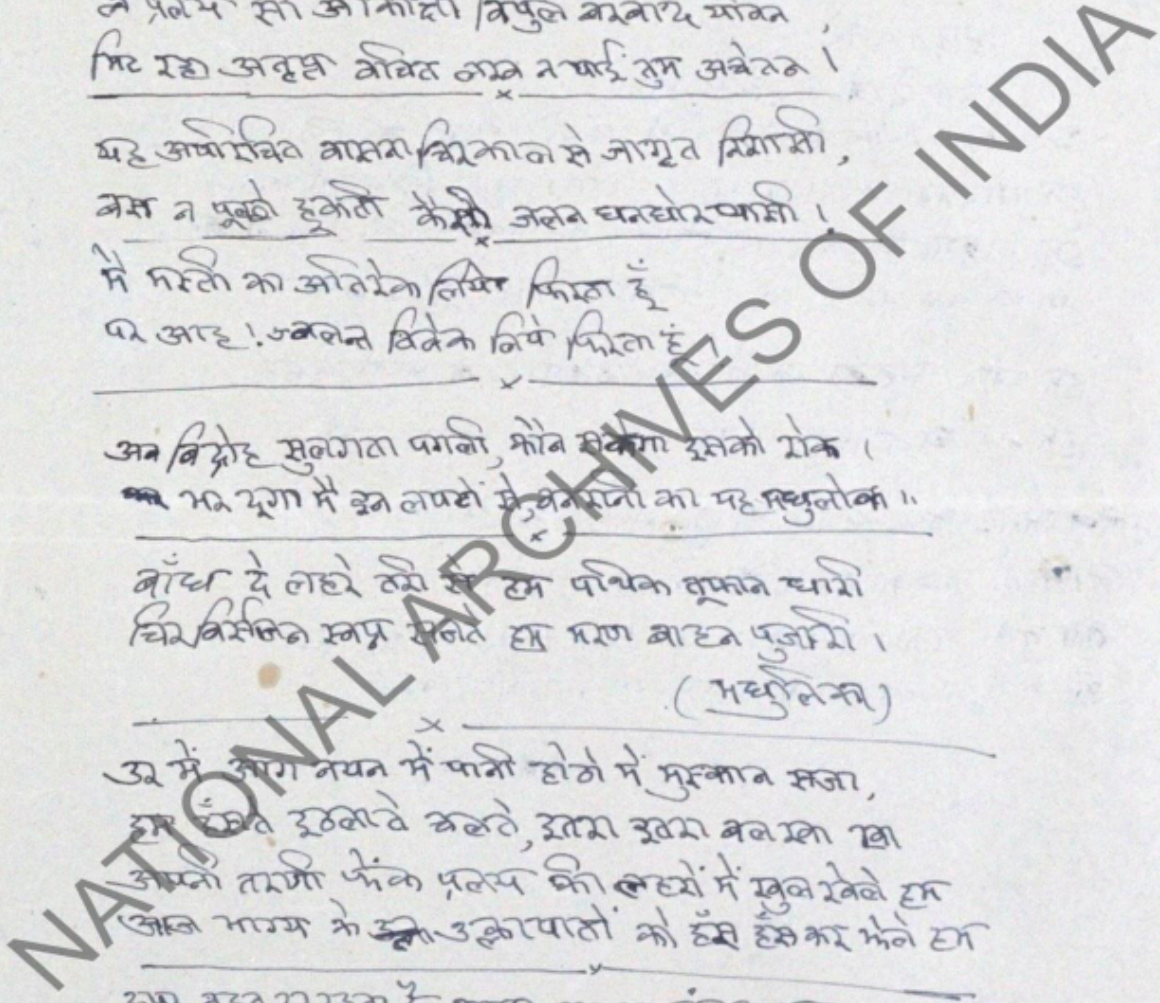 प्रलय सी आकांक्षा विपुल बरबाद यौवन
मिट रहा अतृप्त वंचित लख न पाईं तुम अचेतन ।
यह अपरिचित वासना चिरकाल से जागृत पियासी,
बस न पूछो हूकती कैसी जलन घनघोर प्यासी ।
मैं मस्ती का अतिरेक लिये फिरता हूँ
पर आह ! ज्वलन्त विवेक लिये फिरता हूँ ।
अब विद्रोह सुलगता पगली, कौन सकेगा इसको रोक ।
भर दूंगा मैं इन लपटों से, का यह मधुलोक ।।
बाँध दे लहरें तरी से हम पथिक तूफान धारी
चिर विसर्जन स्वप्न सजाते हम मरण वाहन पुजारी ।
(मधूलिका)
उर में आग नयन में पानी होठों में मुस्कान सजा,
हम हँसते इठलाते चलते, इतरा इतरा बल खा खा
अपनी तरणी फेंक प्रलय की लहरों में खुल खेले हम
आज भाग्य के उल्कापातों को हँस हँस कर झेले हम
NATIONAL ARCHIVES OF INDIA